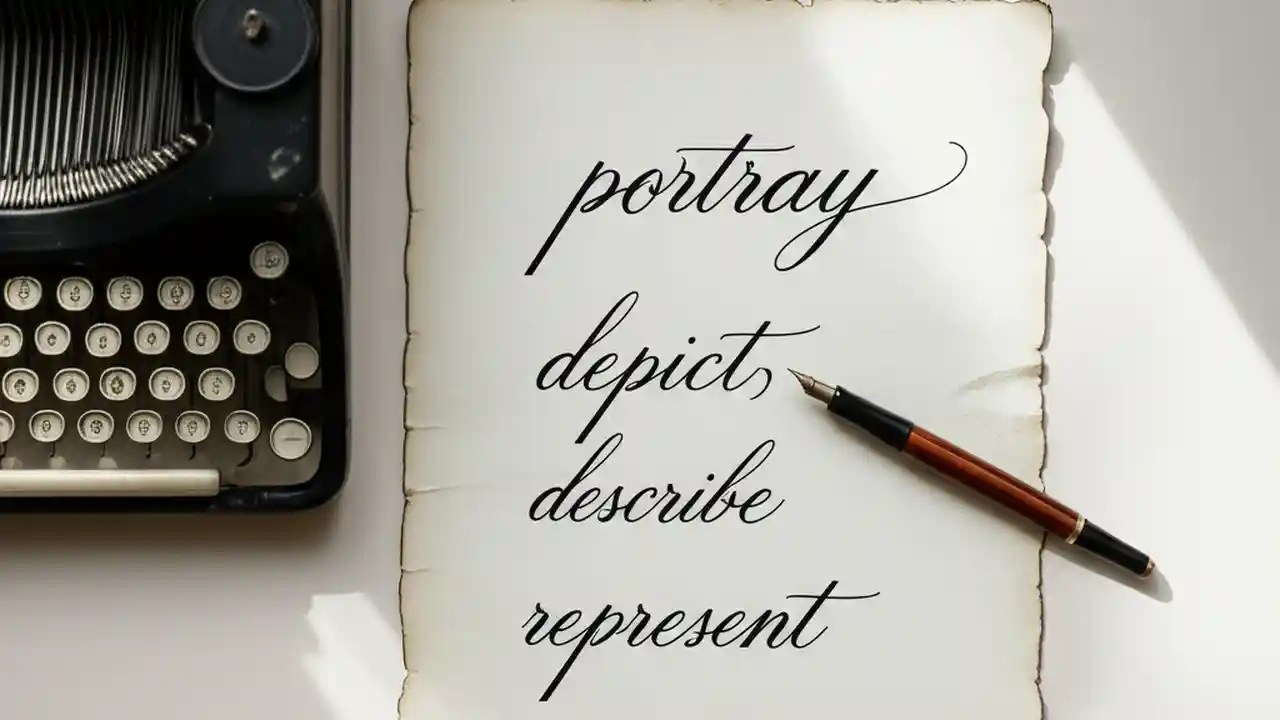 portray
depict,
describe
represent